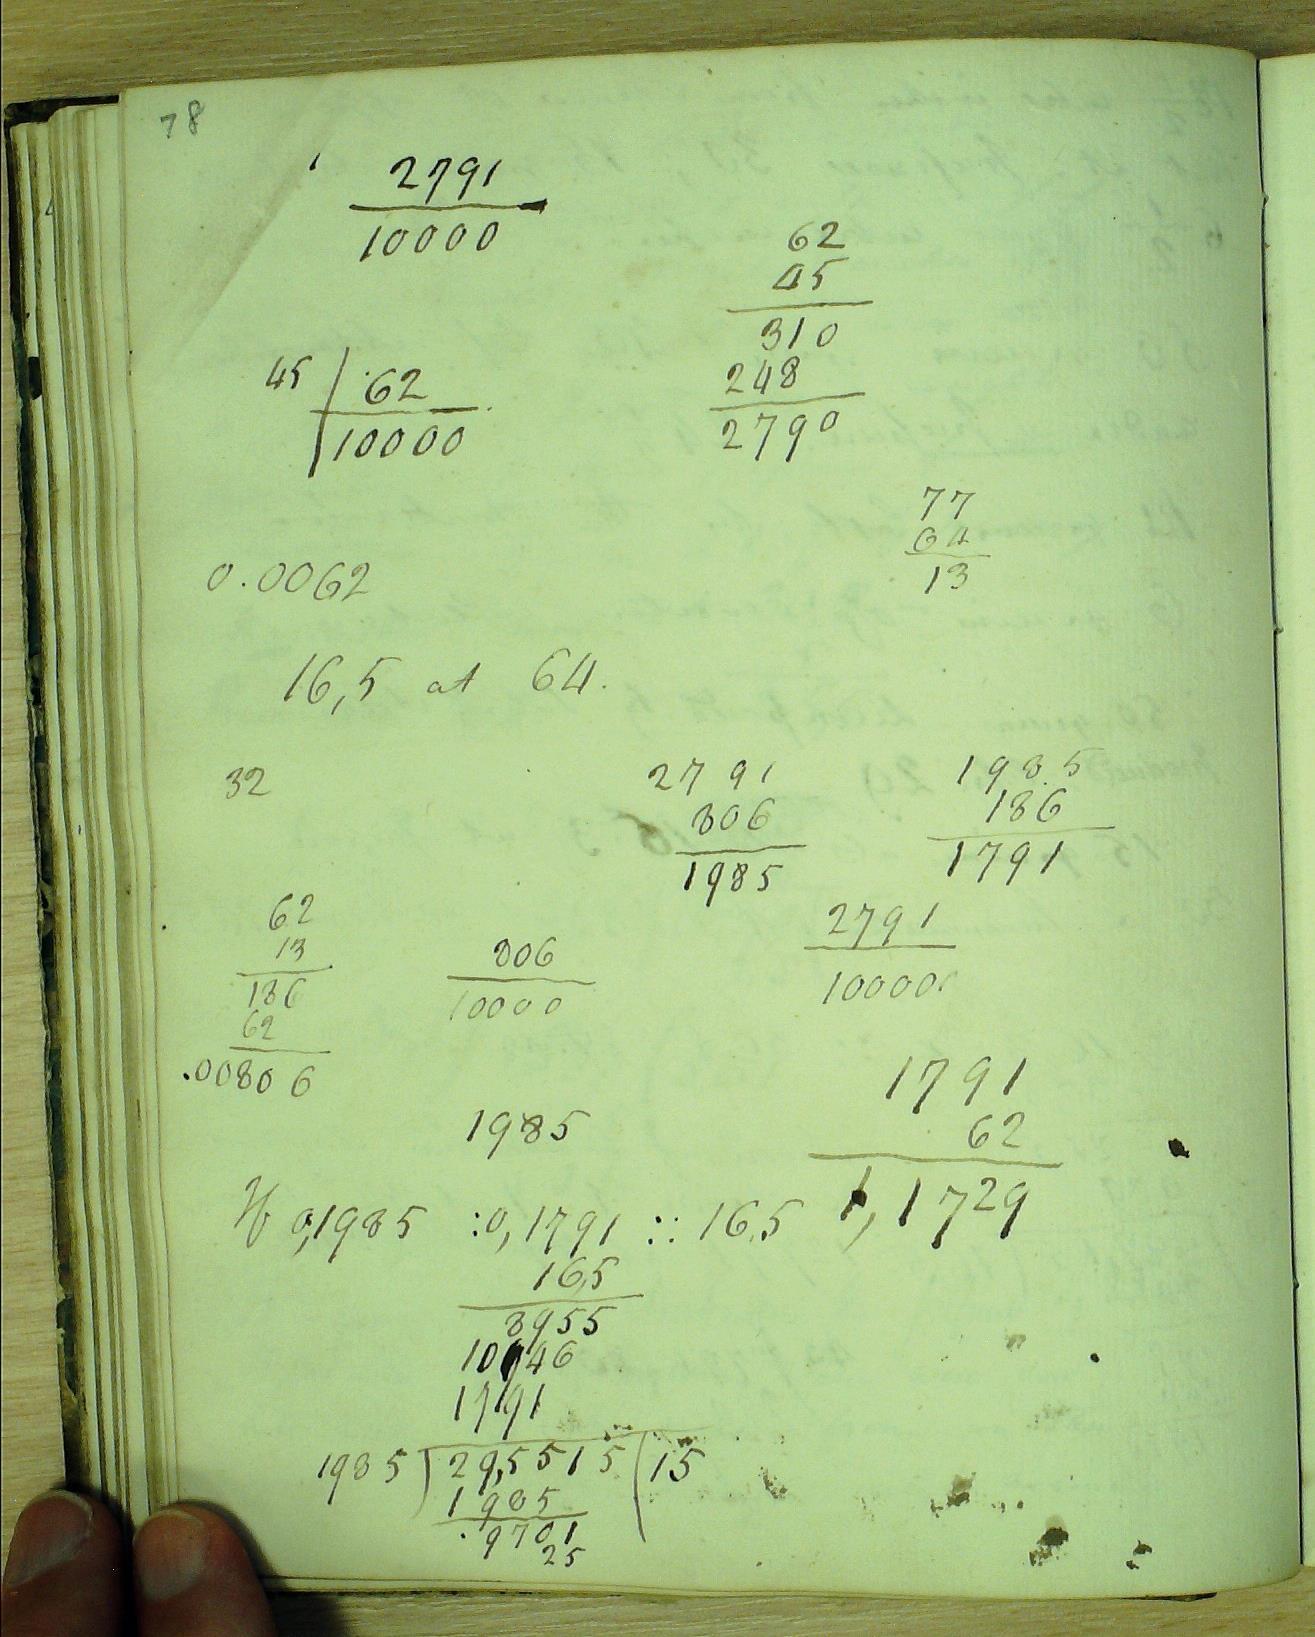 78
2791
10000
62
45
310
248
2790
45 | 62
10000
77
64
13
0.0062
16,5 at 64.
32
2791
806
1985
1985
186
1791
62
13
186
62
.00806
806
10000
2791
10000
1985
1791
62
1,1729
If 0,1985 :0,1791 :: 16.5
16,5
8955
10746
1791
1985 ) 29,5515 ( 15
1985
9701
25